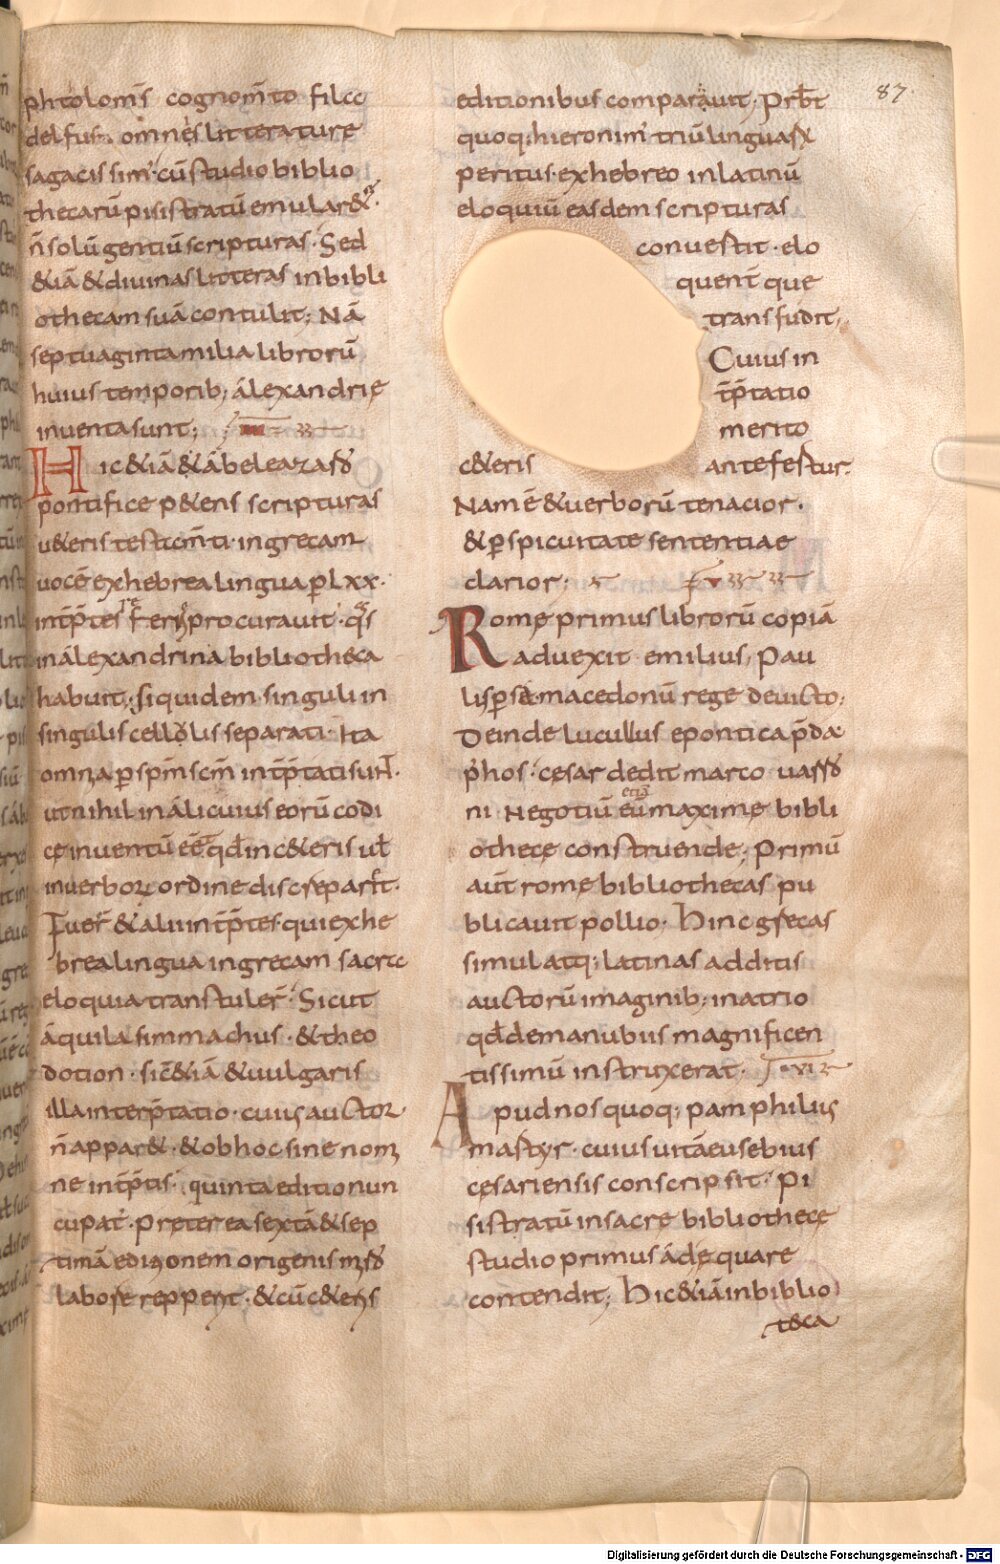 87.
phtolom̄s cognom̄to filcc
delfus. omnes litterature
sagacissim᾿ cū studio biblio
thecarū pisistratū emular&᾿
n̄ solū gentiū scripturas. Sed
&iā & divinas litteras in bibli
othecam suā contulit; Nā
septuaginta milia librorū
huius temporib; alexandrię
inventa sunt; III
Hic &iā & ab eleazaro
pontifice p&ens scripturas
u&eris testam̄ti in grecam
uocē ex hebrea lingua p lxx.
procurauit. q̄s
in alexandrina bibliotheca
habuit; siquidem singuli in
singulis cellolis separati. Ita
omnia p sp̄m sc̄m int̄p̄tati sunt.
ut nihil in alicuius eorū codi
ce inventū eē qd in c&eris ut̄
in verborum ordine discreparet.
Fuer̄ & alii int̄p̄tes qui ex he
brea lingua in grecam sacrcc
eloquia transtuler̄. Sicut
aquila simmachus. & theo
dotion. sic &iā & uulgaris
illa interp̄tatio. cuius auctor
n̄ appar&. & ob hoc sine nom
ne int̄p̄tis. quinta editio nun
cupat᾿. preterea sextā & sep
timā edizonem origenis miro
labore repperit. & cū c&eris
editionibus comparauit; Prb̄t
quoq; hieronim᾿ triū linguarū
peritus ex hebreo in latinū
eloquiū easdem scripturas
convertit. elo
quent̄que
transfudit;
Cuius in
t̄p̄tatio
merito
c&eris antefertur.
Nam ē & uerborū tenacior.
& p̄spicuitate sententiae
clarior; V
Romę primus librorū copiā
aduexit emilius, Pau
lis persa macedonū rege devicto;
Deinde lucullus e pontica p̄da
p᾿hos cesar dedit marco uarro
ni Negotiū eū etiā maximę bibli
othecę construende; Primū
aut̄ rome bibliothecas pu
blicavit pollio. Hinc grecas
simul atq; latinas additis
auctorū imaginib; in atrio
qd̄ de manubiis magnificen
tissimū instruxerat. VI
Apud nos quoq; pamphilus
martyr. cuius uitā eusebius
cesariensis conscripsit. Pi
sistratū in sacre bibliothecę
studio primus adęquare
contendit; Hic &iā in biblio
teca
Digitalisierung gefördert durch die Deutsche Forschungsgemeinschaft - DFG